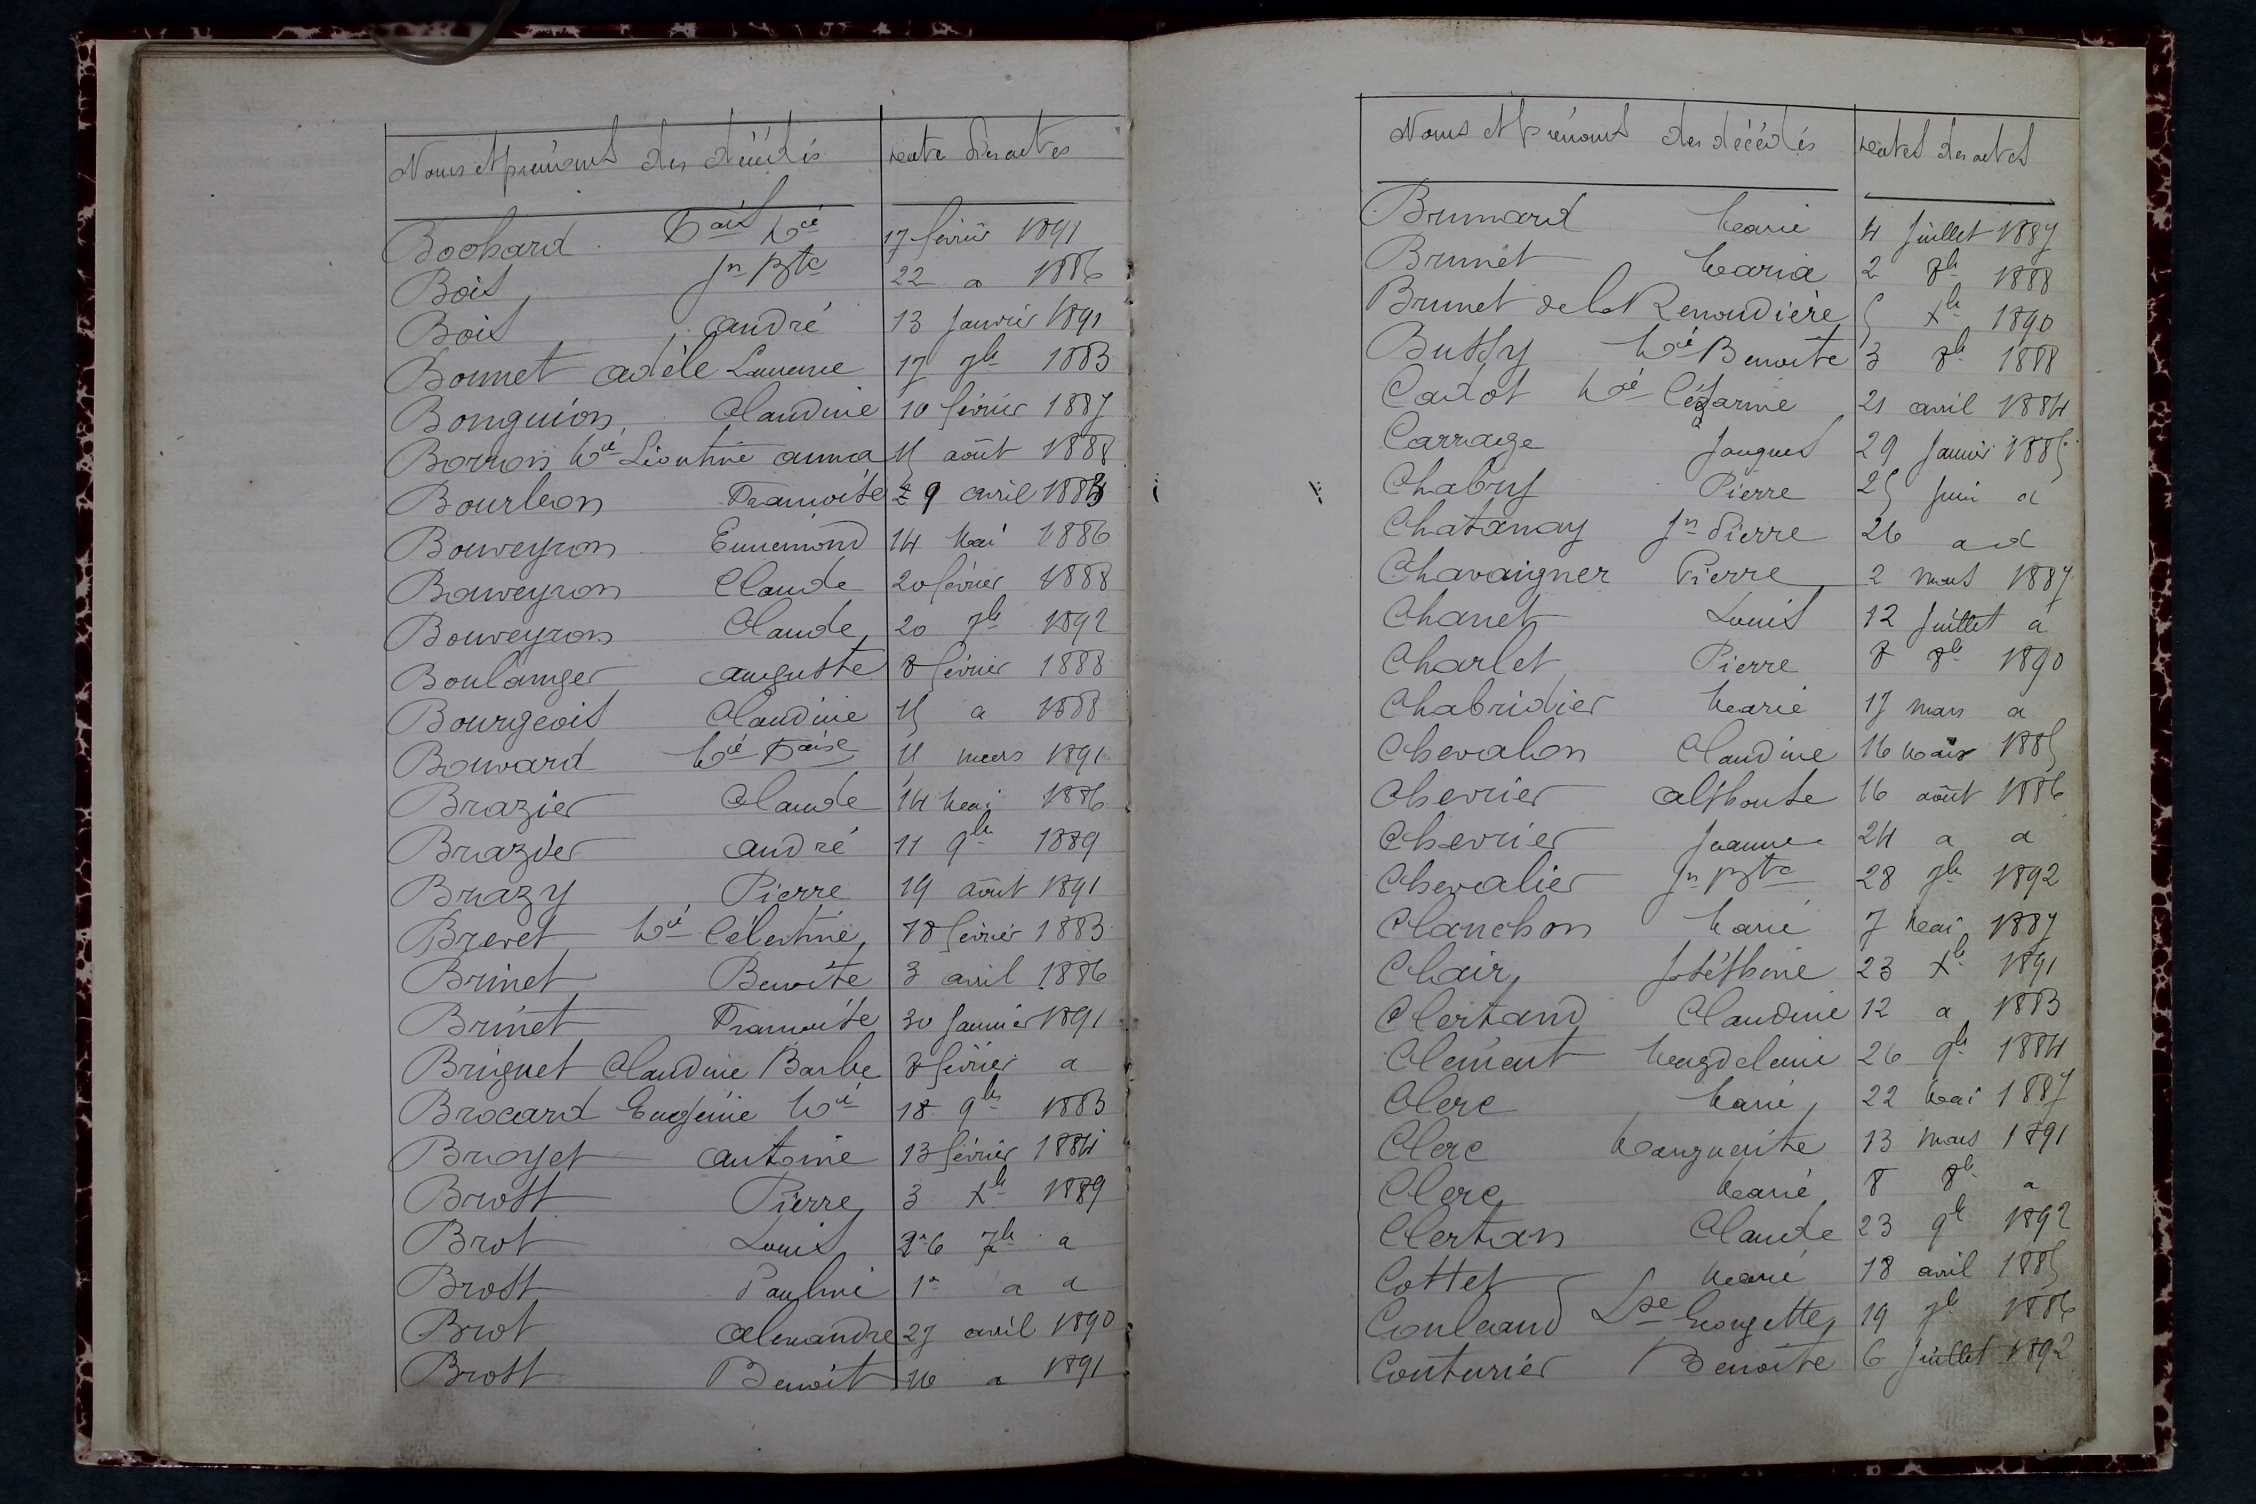 Noms et prénoms des décédés Date des actes
Bochard Fois Mie 17 février 1891
Bois Jn Bte 22 a 1886
Bois andré 13 Janvier 1891
Bonnet adèle Laurence 17 7bre 1883
Bonguion Claudine 10 février 1887
Borron Mie Léontine anna 15 août 1888
Bourbon Françoise 29 avril 1883
Bouveyron Ennemond 14 Mai 1886
Bouveyron Claude 20 février 1888
Bouveyron Claude 20 7bre 1892
Boulanger auguste 8 février 1888
Bourgeois Claudine 15 a 1888
Bouvard Mie Foise 11 mars 1891
Brazier Claude 14 Mai 1886
Brazier andré 11 9bre 1889
Brazy Pierre 19 août 1891
Brevet Mie Célestine 18 février 1883
Brinet Benoite 3 avril 1886
Brinet Françoise 30 Janvier 1891
Briguet Claudine Barbe 8 février a
Brocard Eugénie Mie 18 9bre 1883
Broyet antoine 13 février 1884
Brost Pierre 3 Xbre 1889
Brot Louis 26 7bre a
Brost Pauline 1er a a
Brot alexandre 27 avril 1890
Brost Benoit 16 a 1891
Noms et prénoms des décédés Dates des actes
Brunard Marie 4 Juillet 1887
Brunet Maria 2 8bre 1888
Brunet de la Renoudière 5 Xbre 1890
Bussy Mie Benoite 3 8bre 1888
Cadot Mie Césarine 21 avril 1884
Carrage Jacques 29 Janvier 1885
Chabry Pierre 25 Juin a
Chatanay Jn Pierre 26 a a
Chavaigner Pierre 2 mars 1887
Chanet Louis 12 Juillet a
Charlet Pierre 8 8bre 1890
Chabridier Marie 17 mars a
Chevalon Claudine 16 Mars 1885
Chevrier alphonse 16 août 1886
Chevrier Jeanne 24 a a
Chevalier Jn Bte 28 7bre 1892
Clanchon Marie 7 Mai 1887
Clair Joséphine 23 Xbre 1891
Clertand Claudine 12 a 1883
Clément Magdeleine 26 9bre 1884
Clerc Marie 22 Mai 1887
Clerc Marguerite 13 mars 1891
Clerc Marie 8 8bre a
Clertan Claude 23 9bre 1892
Cottet Marie 18 avril 1885
Couleaud Lse Georgette 19 7bre 1886
Couturier Benoite 6 Juillet 1892